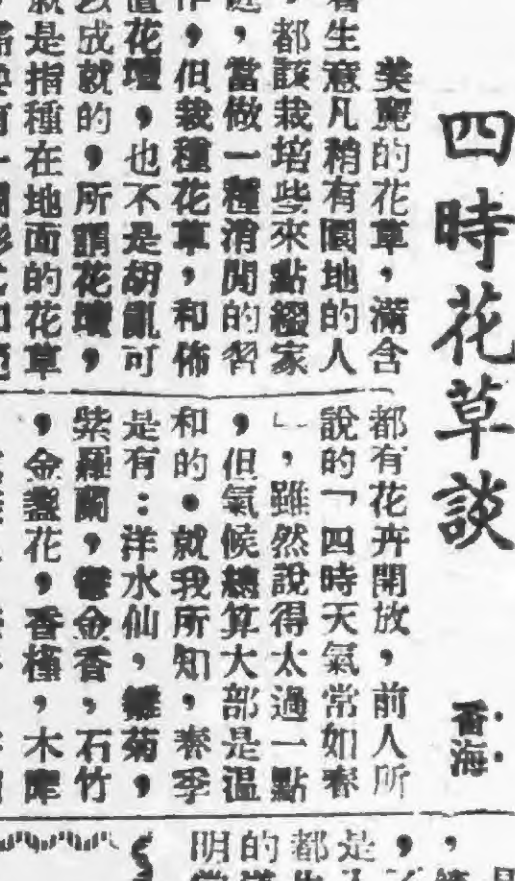 四時花草談
香海
美麗的花草，滿含
着生意凡稍有園地的人
，都該栽培些來點綴家
庭，當做一種消閒的習
作，但栽種花草，和佈
置花壇，也不是胡亂可
以成就的，所謂花壇，
就是指種在地面的花草
都有花卉開放，前人所
說的「四時天氣常如春
」，雖然說得太過一點
，但氣候總算大部是溫
和的。就我所知，春季
是有：洋水仙，雛菊，
紫羅蘭，鬱金香，石竹
，金盞花，香槿，木犀
，
，
是
都
的
明